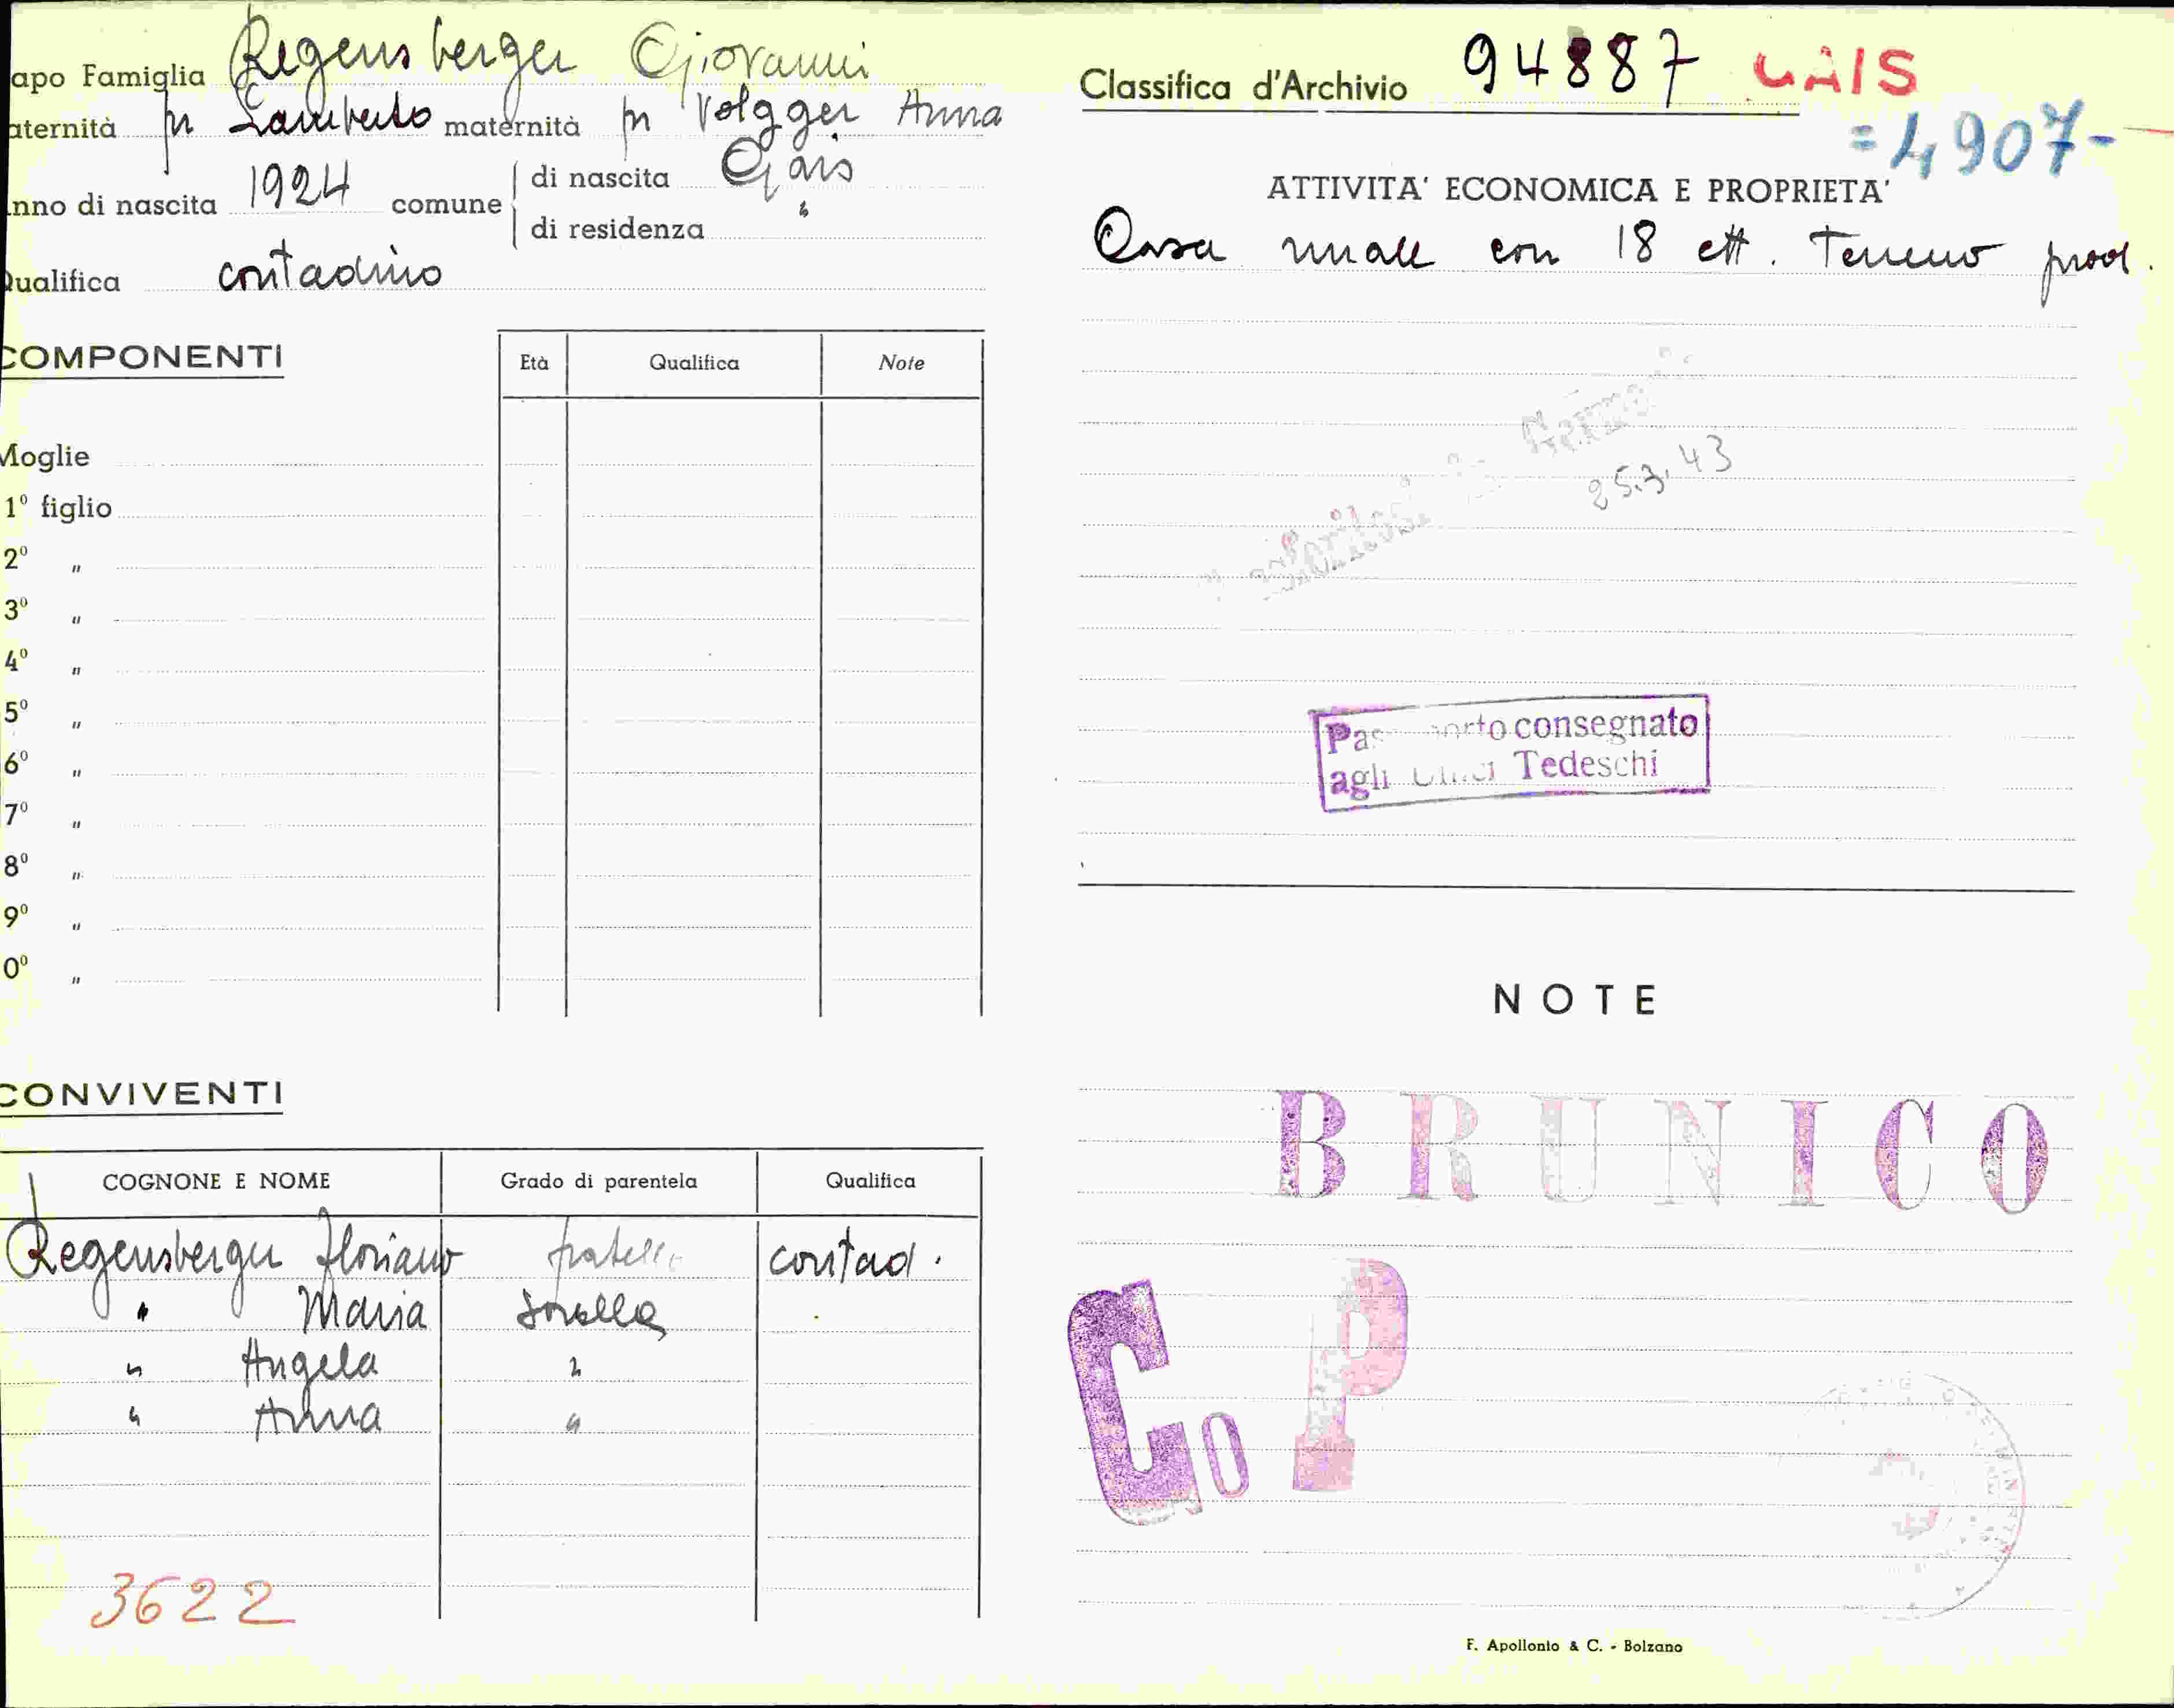 apo Famiglia Regensberger Giovanni
aternità fu Lamberto maternità fu Volgger Anna
nno di nascita 1924 comune di nascita Gais
di residenza "
Qualifica contadino
COMPONENTI
Età Qualifica Note
Moglie
1º figlio
2º "
3º "
4º "
5º "
6º "
7º "
8º "
9º "
0º "
CONVIVENTI
COGNONE E NOME Grado di parentela Qualifica
Regensberger Floriano fratello contad.
" Maria sorella
" Angela "
" Anna "
3622
Classifica d'Archivio 94887 GAIS
=4907-
ATTIVITA' ECONOMICA E PROPRIETA'
Casa rurale con 18 ett. Terreno prod.
25.3.43
Passaporto consegnato
agli Uffici Tedeschi
NOTE
BRUNICO
Go P
F. Apollonio & C. - Bolzano